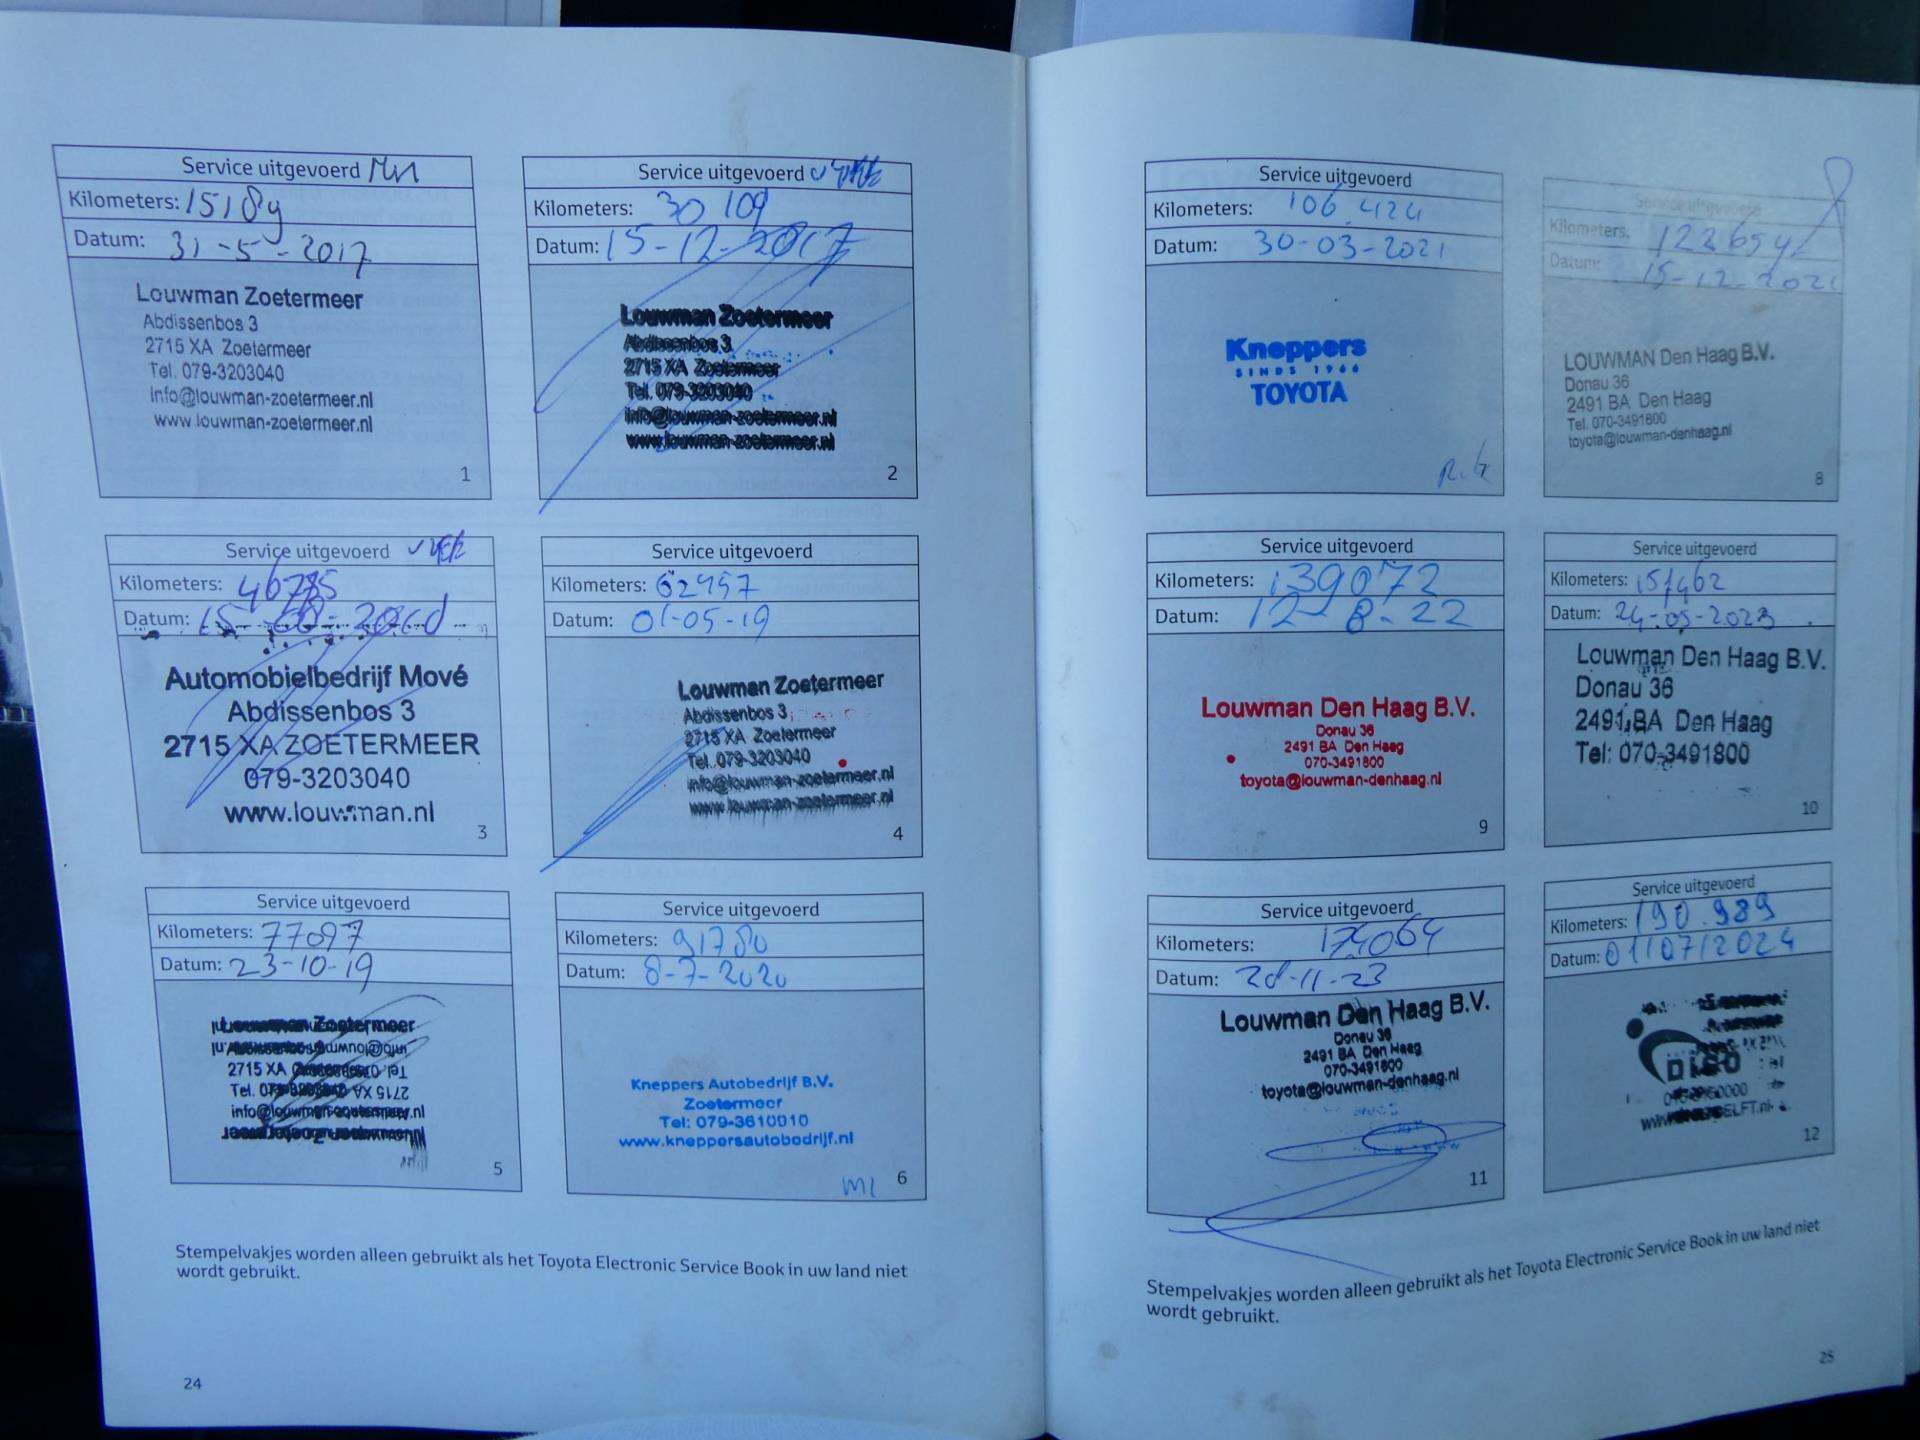 Service uitgevoerd
Kilometers: 15189
Datum: 31-5-2017
Louwman Zoetermeer
Abdissenbos 3
2715 XA Zoetermeer
Tel. 079-3203040
info@louwman-zoetermeer.nl
www.louwman-zoetermeer.nl
1
Service uitgevoerd
Kilometers: 30109
Datum: 15-12-2017
Louwman Zoetermeer
Abdissenbos 3
2715 XA Zoetermeer
Tel. 079-3203040
info@louwman-zoetermeer.nl
www.louwman-zoetermeer.nl
2
Service uitgevoerd
Kilometers:
Datum:
Automobielbedrijf Mové
Abdissenbos 3
2715 XA ZOETERMEER
079-3203040
www.louwman.nl
3
Service uitgevoerd
Kilometers: 62957
Datum: 01-05-19
Louwman Zoetermeer
Abdissenbos 3
2715 XA Zoetermeer
Tel. 079-3203040
info@louwman-zoetermeer.nl
www.louwman-zoetermeer.nl
4
Service uitgevoerd
Kilometers: 77097
Datum: 23-10-19
Louwman Zoetermeer
2715 XA
Tel.
5
Service uitgevoerd
Kilometers: 91780
Datum: 8-7-2020
Kneppers Autobedrijf B.V.
Zoetermeer
Tel: 079-3610010
www.kneppersautobedrijf.nl
6
Stempelvakjes worden alleen gebruikt als het Toyota Electronic Service Book in uw land niet
wordt gebruikt.
24
Service uitgevoerd
Kilometers: 106.424
Datum: 30-03-2021
Kneppers
SINDS 1966
TOYOTA
R.G
Service uitgevoerd
Kilometers: 123654
Datum: 15-12-2021
LOUWMAN Den Haag B.V.
Donau 36
2491 BA Den Haag
Tel. 070-3491800
toyota@louwman-denhaag.nl
8
Service uitgevoerd
Kilometers: 139072
Datum: 12-8-22
Louwman Den Haag B.V.
Donau 36
2491 BA Den Haag
070-3491800
toyota@louwman-denhaag.nl
9
Service uitgevoerd
Kilometers: 151462
Datum: 24-05-2023
Louwman Den Haag B.V.
Donau 36
2491 BA Den Haag
Tel: 070-3491800
10
Service uitgevoerd
Kilometers: 174064
Datum: 28-11-23
Louwman Den Haag B.V.
Donau 36
2491 BA Den Haag
070-3491800
toyota@louwman-denhaag.nl
11
Service uitgevoerd
Kilometers: 190.989
Datum: 01/07/2024
12
Stempelvakjes worden alleen gebruikt als het Toyota Electronic Service Book in uw land niet
wordt gebruikt.
25